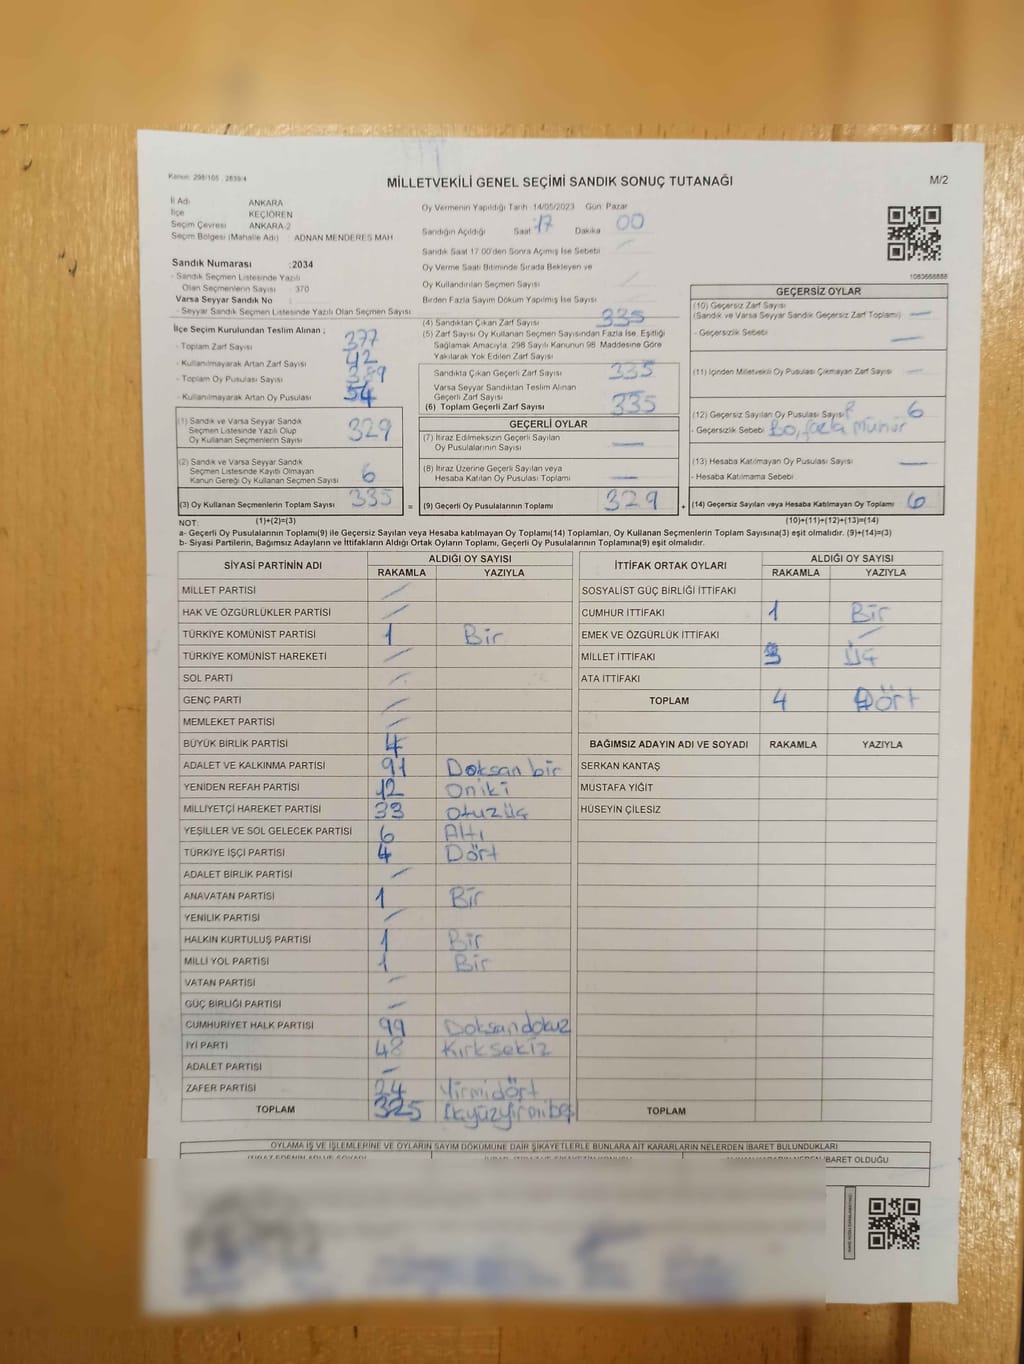 Kanun: 298/105 , 2839/4
MİLLETVEKİLİ GENEL SEÇİMİ SANDIK SONUÇ TUTANAĞI
M/2
İl Adı ANKARA
İlçe KEÇİÖREN
Seçim Çevresi ANKARA-2
Seçim Bölgesi (Mahalle Adı) : ADNAN MENDERES MAH
Oy Vermenin Yapıldığı Tarih 14/05/2023 Gün Pazar
Sandığın Açıldığı Saat 17 Dakika 00
Sandık Saat 17.00'den Sonra Açılmış İse Sebebi
Oy Verme Saati Bitiminde Sırada Bekleyen ve
Oy Kullandırılan Seçmen Sayısı
Birden Fazla Sayım Döküm Yapılmış İse Sayısı
1083668888
Sandık Numarası :2034
- Sandık Seçmen Listesinde Yazılı
Olan Seçmenlerin Sayısı : 370
Varsa Seyyar Sandık No
- Seyyar Sandık Seçmen Listesinde Yazılı Olan Seçmen Sayısı
İlçe Seçim Kurulundan Teslim Alınan ;
- Toplam Zarf Sayısı 377
- Kullanılmayarak Artan Zarf Sayısı 42
- Toplam Oy Pusulası Sayısı 389
- Kullanılmayarak Artan Oy Pusulası 54
(1) Sandık ve Varsa Seyyar Sandık
Seçmen Listesinde Yazılı Olup
Oy Kullanan Seçmenlerin Sayısı 329
(2) Sandık ve Varsa Seyyar Sandık
Seçmen Listesinde Kayıtlı Olmayan
Kanun Gereği Oy Kullanan Seçmen Sayısı 6
(3) Oy Kullanan Seçmenlerin Toplam Sayısı 335
(4) Sandıktan Çıkan Zarf Sayısı 335
(5) Zarf Sayısı Oy Kullanan Seçmen Sayısından Fazla İse, Eşitliği
Sağlamak Amacıyla, 298 Sayılı Kanunun 98. Maddesine Göre
Yakılarak Yok Edilen Zarf Sayısı
Sandıkta Çıkan Geçerli Zarf Sayısı 335
Varsa Seyyar Sandıktan Teslim Alınan
Geçerli Zarf Sayısı
(6) Toplam Geçerli Zarf Sayısı 335
GEÇERLİ OYLAR
(7) İtiraz Edilmeksizin Geçerli Sayılan
Oy Pusulalarının Sayısı —
(8) İtiraz Üzerine Geçerli Sayılan veya
Hesaba Katılan Oy Pusulası Toplamı —
= (9) Geçerli Oy Pusulalarının Toplamı 329
GEÇERSİZ OYLAR
(10) Geçersiz Zarf Sayısı
(Sandık ve Varsa Seyyar Sandık Geçersiz Zarf Toplamı) —
- Geçersizlik Sebebi —
(11) İçinden Milletvekili Oy Pusulası Çıkmayan Zarf Sayısı —
(12) Geçersiz Sayılan Oy Pusulası Sayısı 6
- Geçersizlik Sebebi fazla Mühür
(13) Hesaba Katılmayan Oy Pusulası Sayısı —
- Hesaba Katılmama Sebebi
+ (14) Geçersiz Sayılan veya Hesaba Katılmayan Oy Toplamı 6
NOT: (1)+(2)=(3) (10)+(11)+(12)+(13)=(14)
a- Geçerli Oy Pusulalarının Toplamı(9) ile Geçersiz Sayılan veya Hesaba katılmayan Oy Toplamı(14) Toplamları, Oy Kullanan Seçmenlerin Toplam Sayısına(3) eşit olmalıdır. (9)+(14)=(3)
b- Siyasi Partilerin, Bağımsız Adayların ve İttifakların Aldığı Ortak Oyların Toplamı, Geçerli Oy Pusulalarının Toplamına(9) eşit olmalıdır.
SİYASİ PARTİNİN ADI ALDIĞI OY SAYISI
RAKAMLA YAZIYLA
MİLLET PARTİSİ
HAK VE ÖZGÜRLÜKLER PARTİSİ
TÜRKİYE KOMÜNİST PARTİSİ 1 Bir
TÜRKİYE KOMÜNİST HAREKETİ
SOL PARTİ
GENÇ PARTİ
MEMLEKET PARTİSİ
BÜYÜK BİRLİK PARTİSİ 4
ADALET VE KALKINMA PARTİSİ 91 Doksan bir
YENİDEN REFAH PARTİSİ 12 Oniki
MİLLİYETÇİ HAREKET PARTİSİ 33 otuzüç
YEŞİLLER VE SOL GELECEK PARTİSİ 6 Altı
TÜRKİYE İŞÇİ PARTİSİ 4 Dört
ADALET BİRLİK PARTİSİ
ANAVATAN PARTİSİ 1 Bir
YENİLİK PARTİSİ
HALKIN KURTULUŞ PARTİSİ 1 Bir
MİLLİ YOL PARTİSİ 1 Bir
VATAN PARTİSİ
GÜÇ BİRLİĞİ PARTİSİ
CUMHURİYET HALK PARTİSİ 99 Doksandokuz
İYİ PARTİ 48 Kırksekiz
ADALET PARTİSİ
ZAFER PARTİSİ 24 Yirmidört
TOPLAM 325
İTTİFAK ORTAK OYLARI ALDIĞI OY SAYISI
RAKAMLA YAZIYLA
SOSYALİST GÜÇ BİRLİĞİ İTTİFAKI
CUMHUR İTTİFAKI 1 Bir
EMEK VE ÖZGÜRLÜK İTTİFAKI
MİLLET İTTİFAKI 3 Üç
ATA İTTİFAKI
TOPLAM 4 Dört
BAĞIMSIZ ADAYIN ADI VE SOYADI RAKAMLA YAZIYLA
SERKAN KANTAŞ
MUSTAFA YİĞİT
HÜSEYİN ÇİLESİZ
TOPLAM
OYLAMA İŞ VE İŞLEMLERİNE VE OYLARIN SAYIM DÖKÜMÜNE DAİR ŞİKAYETLERLE BUNLARA AİT KARARLARIN NELERDEN İBARET BULUNDUKLARI
İBARET OLDUĞU